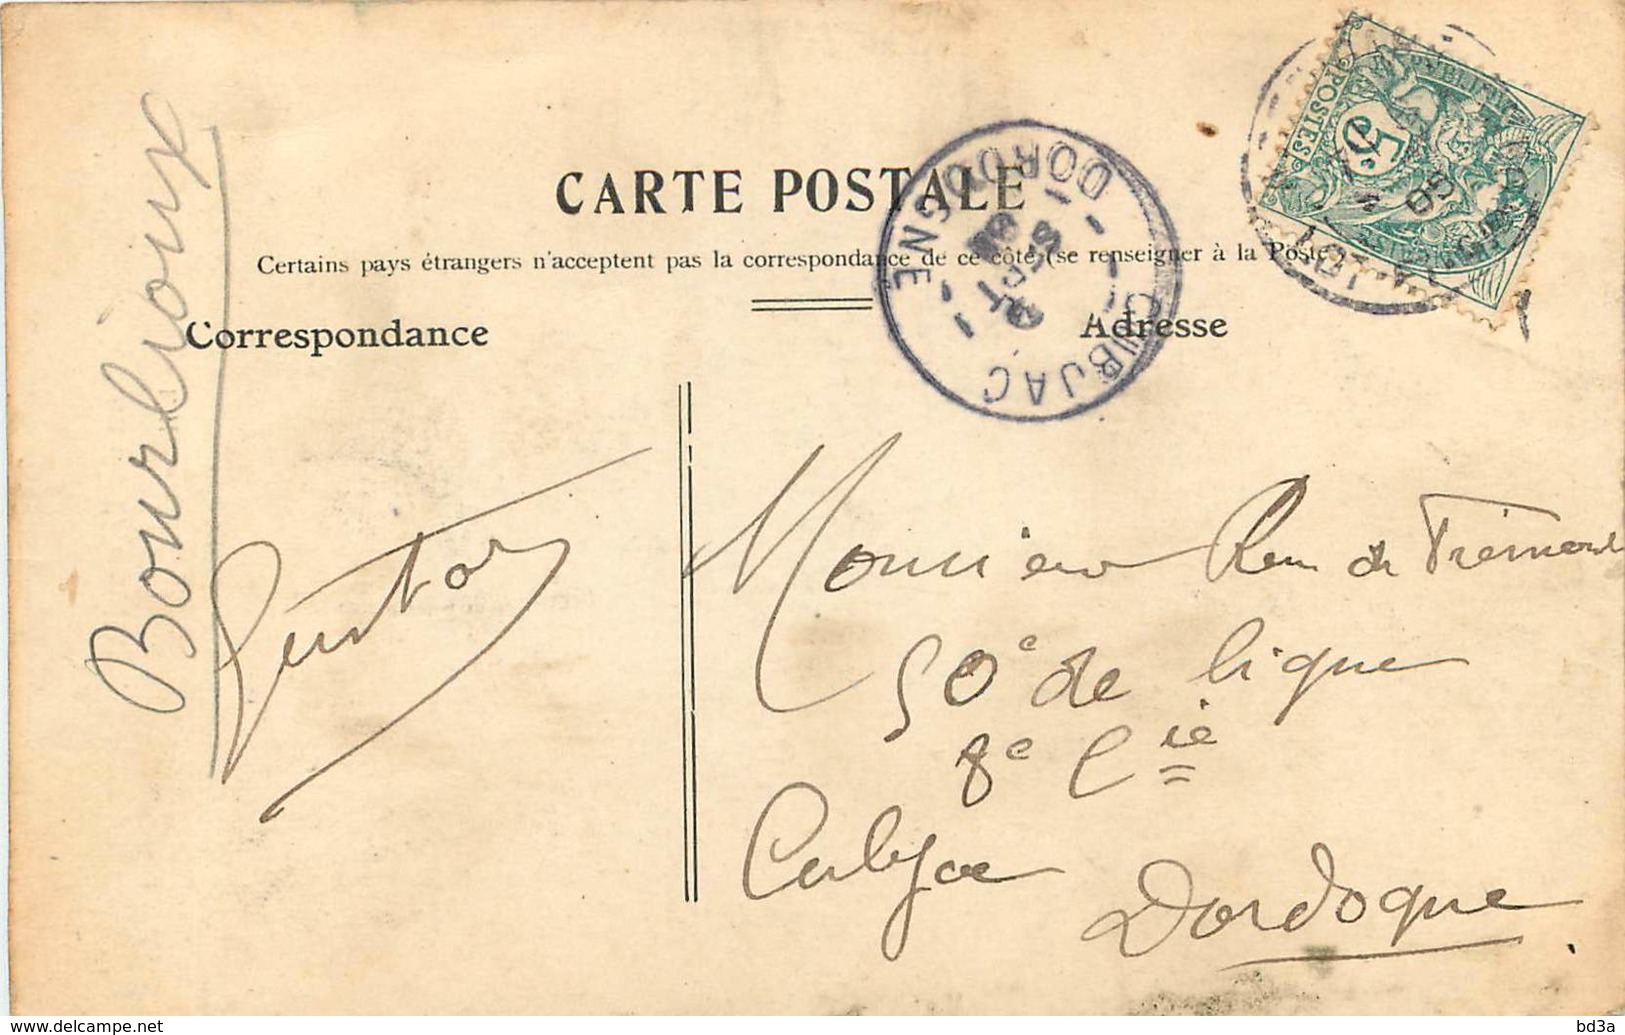 CARTE POSTALE
Certains pays étrangers n'acceptent pas la correspondance de ce côté (se renseigner à la Poste
Correspondance
Adresse
CUBJAC
DORDOGNE
SEPT
POSTES
5
LOT
05
Bourlioux
Monsieur
50e de ligne
8e Cie
Cubjac
Dordogne
www.delcampe.net
bd3a